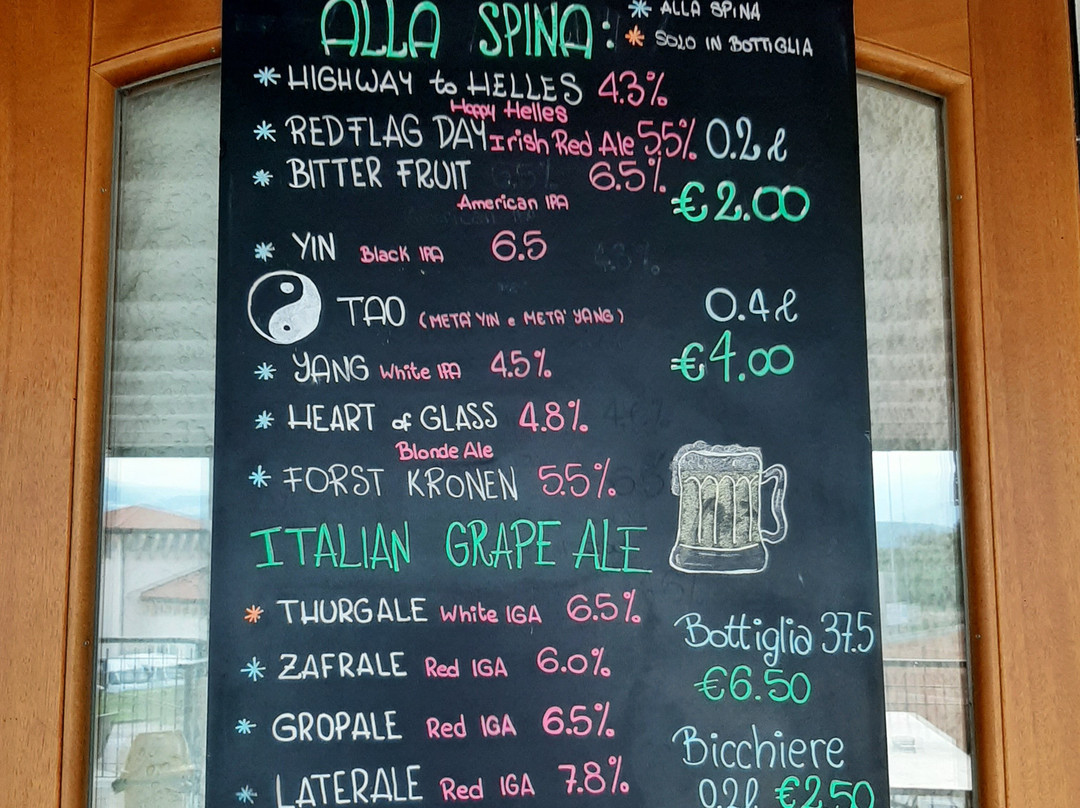 ALLA SPINA:
* ALLA SPINA
* SOLO IN BOTTIGLIA
* HIGHWAY to HELLES 4.3%
Hoppy Helles
* RED FLAG DAY Irish Red Ale 5.5%
* BITTER FRUIT 6.5%
American IPA
* YIN Black IPA 6.5
TAO (META' YIN e META' YANG)
* YANG White IPA 4.5%
* HEART of GLASS 4.8%
Blonde Ale
* FORST KRONEN 5.5%
0.2 l
€2.00
0.4 l
€4.00
ITALIAN GRAPE ALE
* THURGALE White IGA 6.5%
* ZAFRALE Red IGA 6.0%
* GROPALE Red IGA 6.5%
* LATERALE Red IGA 7.8%
Bottiglia 37.5
€6.50
Bicchiere
0.2l €2.50